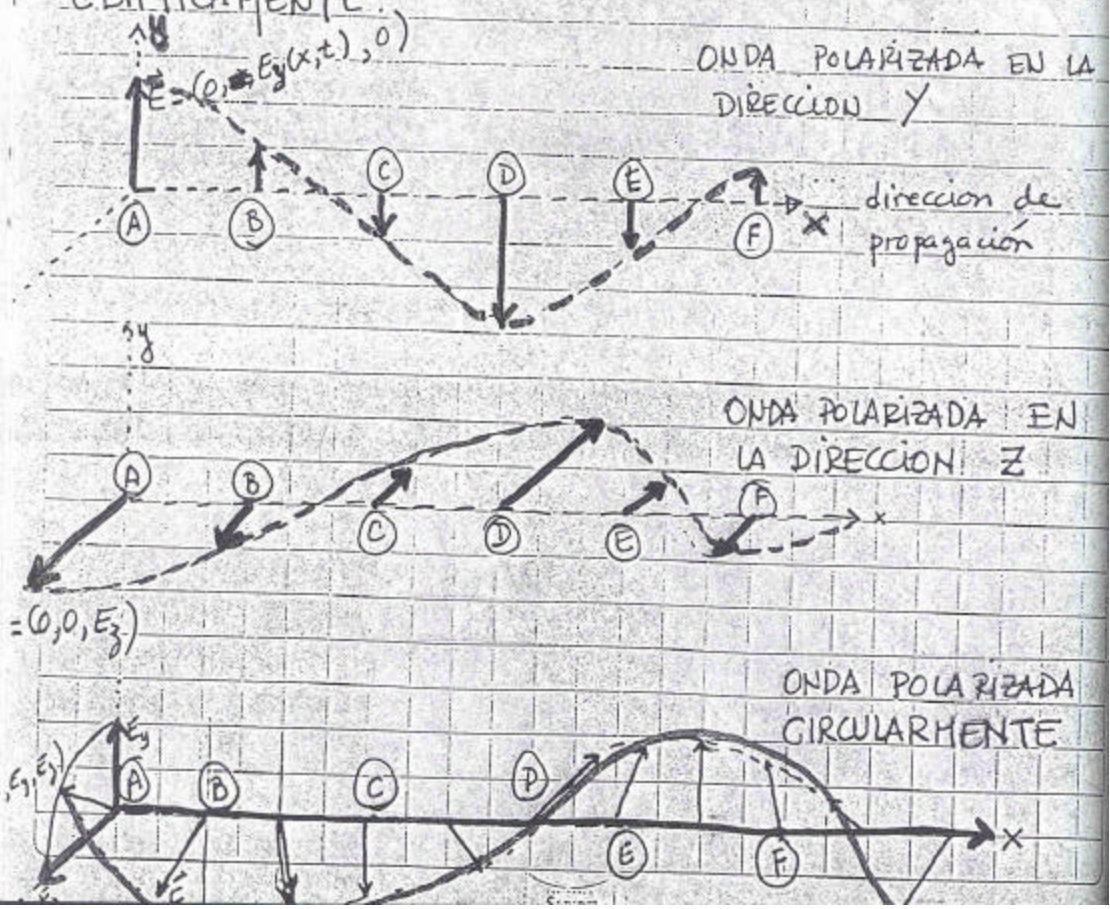 y
E⃗ = (0, Ey(x,t), 0)
ONDA POLARIZADA EN LA
DIRECCION Y
A B C D E F
X
direccion de
propagación
y
ONDA POLARIZADA EN
LA DIRECCION Z
A B C D E F
x
=(0,0,Ez)
ONDA POLARIZADA
CIRCULARMENTE
Ey
A B C D E F
X
E⃗